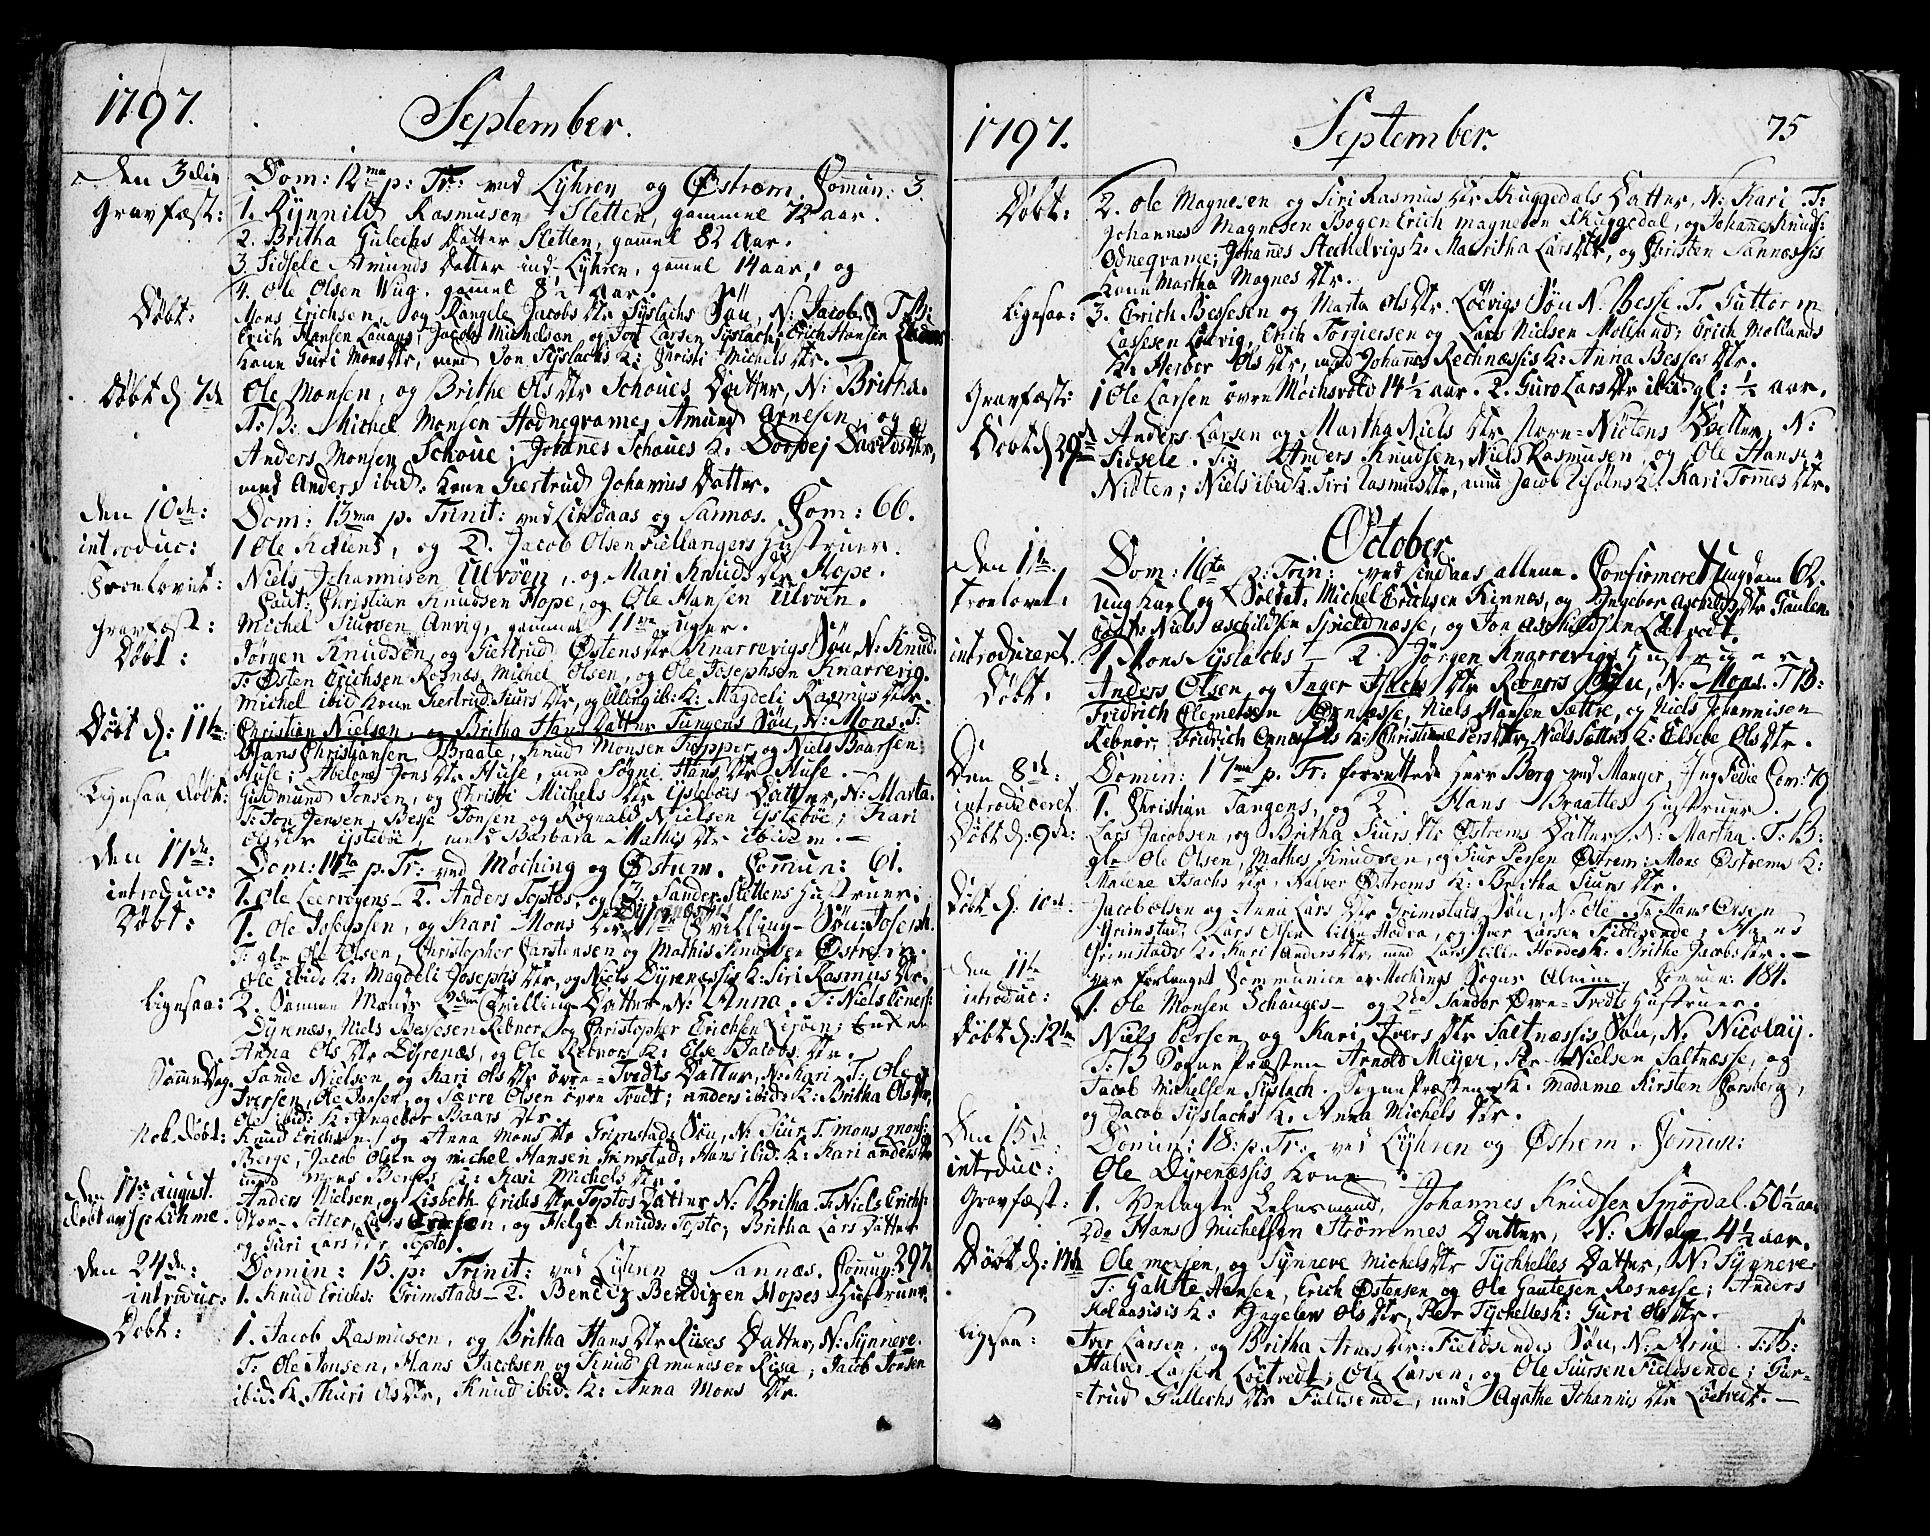 1797. September.
Den 3die Dom: 12ma p: Tr: ved Lyhren og Østrem. Comun: 3.
Gravfæst: 1. Rynnild Rasmusen Sletten, gammel 72 aar.
2. Britha Gulechs Datter Sletten, gamel 82 Aar.
3. Sidsele Amunds Datter ind-Lyhren, gamel 14 aar, og
4. Ole Olsen Wug. gamel 8½ Aar.
Døbt: Mons Erichsen, og Rangele Jacobs Dtr Syslachs Søn, N: Jacob. T: B:
Erich Hansen Lauaas, Jacob Michelsen og Jon Larsen Syslach; Erich Hansen
Kone Guri Mons Dtr, med Jon Syslachs K: Christi Michels Dtr.
Døbt d 7de Ole Monsen, og Brithe Ols Dtr Schoues Datter, N: Britha.
T: B: Michel Monsen Hodnegrame, Amund Arnesen, og
Anders Monsen Schoue; Johanes Schoues K. Dorдej Davids Dtr,
med Anders ibid. Kone Giertrud Johannis Datter.
Den 10de: Dom: 13ma p. Trinit: ved Lindaas og Sannæs. Com: 66.
introduc: 1 Ole Keilens, og 2. Jacob Olsen Fiellangers Hustruer.
Troelovet: Niels Johannisen Ulvøen, og Mari Knuds Dtr Hope.
Caut: Christian Knudsen Hope, og Ole Hansen Ulvøen.
gravfæst: Michel Siursen Anvig, gammel 11 uger.
Døbt: Jørgen Knudsen, og Giertrud Østens Dtr Knarrevigs Søn N: Knud.
T: Østen Erichsen Rosnæs, Michel Olsen, og Ole Josephsen Knarrevig.
Michel ibid Kone Giertrud Siurs Dtr, og Elling ib: K: Magdeli Rasmus Dtr.
Døbt d: 11te: Christian Nielsen, og Britha Hans Datter Tangens Søn, N: Mons. T:
Hans Christiansen Braate, Knud Monsen Tepper, og Niels Baarsen
Huse; Abelone Jons Dtr Huse, med Søgni Hans Dtr Huse.
Ligesaa Døbt: Gudmund Jensen, og Christi Michels Dtr Ystebøes Datter, N: Marta.
T: Jon Jensen, Besse Jonsen og Rognald Nielsen Ystebøe; Kari
Ols Dtr Ystebøe, med Barbara Mathis Dtr ibidem.
Den 17de: Dom: 14ta p. Tr: ved Møching og Østrem. Comun: 61.
introduc: 1. Ole Leervøgens - 2. Anders Toptos, og 3. Sander Slettens Hustruer.
Døbt: 1. Ole Josephsen, og Kari Mons Dtr Dyrenæs Tvilling-Søn: Joseph.
T: gle Ole Olsen, Christopher Carstensen og Mathis Knudsen Østrem.
Ole ibid: K: Magdeli Josephs Dtr, og Niels Dyrenæssis K: Siri Rasmus Dtr.
Ligesaa: 2. Samme Mands 2den Tvilling-Datter N: Anna. T: Niels
Dynnæs, Niels Bessesen Rebnor, og Christopher Erichsen
Anna Ols Dtr Dyrenæs, og Ole Rebnors K: Else Jacobs Dtr.
Samme Dag. Sande Nielsen, og Kari Ols Dtr øvre-Tvedts Datter, N: Kari. T: Ole
Iversen, Ole Jonsen, og Sævre Olsen øvre Tvedt; anders ibid: K: Britha Ols Dtr,
Ole ibid: K: Ingebor Baars Dtr.
Nok Døbt: Knud Erichsen, og Anna Mons Dtr Grimstads Søn, N: Siur. T: Mons Mons:
Berge, Jacob Olsen og Michel Hansen Grimstad; Hans ibid: K: Kari anders Dtr
med Mons Berges K: Kari Michels Dtr.
Den 17de august. Anders Nielsen, og Lisbeth Erichs Dtr Toptos Datter N: Britha. T: Niels Erichs:
Døbt av Hr: Kihme. Lars Erichsen, og Helge Knuds: Topto; Britha Lars Datter
og Guri Lars Dtr Topto.
Den 24de: Domin: 15. p: Trinit: ved Lyhren og Sannæs. Comun: 297.
introduc: 1. Knud Erichs: Grimstads - 2. Bendix Bendixen Hopes Hustruer.
Døbt: 1. Jacob Rasmusen, og Britha Hans Dtr Rises Datter, N: Synneve.
T: Ole Jonsen, Hans Jacobsen og Knud Amundsen Rise; Jacob Jonsen
ibid: K. Thuri Ols Dtr, Knud ibid: K: Anna Mons Dtr.
1797. September. 75
Døbt: 2. Ole Magnesen og Siri Rasmus Dtr Skuggedals Datter, N: Kari. T:
Johannes Magnesen Bogen, Erich magnesen Skuggedal, og Johannes Knuds:
Odnegrame; Johanes Stechelvigs K: Maritha Lars Dtr, og Christen Sannæssis
Kone Martha Magnes Dtr.
Ligesaa: 3. Erich Bessesen og Marta Ols Dtr Løevigs Søn N. Besse. T: Guttorm
Lassesen Løevig, Erich Torgiersen og Lars Nielsen Molland; Erich Mollands
K: Herbor Ols Dtr, med Johannes Rechnæssis K: Anna Besses Dtr.
Gravfæst: 1 Ole Larsen øvre Mochsvold 14½ aar. 2. Guro Lars Dtr ibid gl: ½ aar.
Døbt d 29de Anders Larsen og Martha Niels Dtr Norre-Niøtens Datter, N:
Sidsele. T: Anders Knudsen, Niels Rasmusen og Ole Hansen
Niøten; Niels ibid K. Siri Rasmus Dtr, med Jacob K: Kari Tomes Dtr.
October.
Den 1te. Dom: 16ta p: Trin: ved Lindaas allene. Confirmeret Ungdom 62.
Troelovet. Ung Karl og Soldat, Michel Erichsen Kinnæs, og Ingebor Aschilds Dtr
Caut: Niels Aschildsen Spieldnæsse, og Jon Aschildsen Løetvedt.
introduceret. 1. Mons Syslachs - 2. Jørgen Knarrevigs Hustruer.
Døbt. Anders Olsen, og Inger Isachs Dtr Rebnors Søn, N: Mons. T B:
Fridrich Clemetsen Ornæsse, Niels Hansen Sættre, og Niels Johannisen
Rebnor; Fridrich Ornæssis K: Christiane Pers Dtr, Niels Sættres K: Elsebe Ols Dtr.
Den 8de: Domin: 17ma p. Tr: forrettede Herr Berg ved Manger, Com: 79
introduceret. 1. Christian Tangens, og 2. Hans Braattes Hustruer.
Døbt d: 9de: Lars Jacobsen, og Britha Siurs Dtr Østrems Datter, N: Martha. T: B:
gle Ole Olsen, Mathes Knudsen, og Siur Persen Østrem; Mons Østrems K:
Malene Isachs Dtr, Halver Østrems K: Britha Siurs Dtr.
Døbt d: 10de. Jacob Olsen og Anna Lars Dtr Grimstads Søn, N: Ole. T: Hans Olsen
Grimstad, Lars Olsen lille Hodra, og Iver Larsen Fieldsende; Hans
Grimstads K: Kari anders Dtr med Lars lille Hordes K: Brithe Jacobs Dtr.
den 11te var forlanget Communion av Mochings Sogns Almue, Comun: 184.
introduc: 1. Ole Monsen Schauges - og 2de Sandor Øvre-Tvedts Hustruer.
Døbt d: 12te Niels Persen og Kari Ivers Dtr Saltnæssis Søn, N: Nicolaÿ.
T: B Sogne Præsten Arnold Meyer, Per Nielsen Saltnæsse, og
Jacob Michelsen Syslach. Sogne Præstens K: Madame Kirsten Forsberg,
og Jacob Syslachs K. Anna Michels Dtr.
Den 15de Domin: 18: p: Tr: ved Lyhren og Østrem. Comun:
introduc: Ole Dyrenæssis Kone.
Gravfæst: 1. Velagte Lehnsmand, Johannes Knudsen Smørdal. 50½ aar
2de Hans Michelsen Strømmes Datter, N: 4½ aar.
Døbt d: 17de Ole monsen, og Synneve Michels Dtr Tychhelles Datter, N: Synneve.
T: Gautte Hansen, Erich Østensen og Ole Gautesen Rosnæsse; Anders
Kolaasisis K: Ingeleu Ols Dtr, Per Tychelles K: Guri Ols Dtr.
Ligesaa: Iver Larsen, og Britha Arnes Dtr Fieldsendes Søn, N: Arne. T: B:
Halver Lassen Løetvedt; Ole Larsen, og Ole Siursen Fieldsende; Giær-
-trud Gullechs Dtr Fieldsende, med Agathe Johannis Dtr Løetvedt.